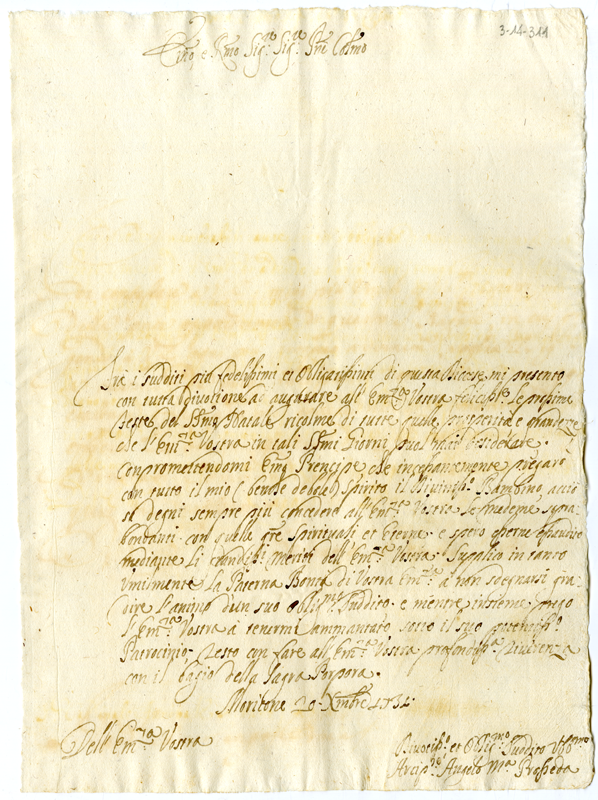 3-14-311
Emo e Rmo Sig.re Sig.re Pne Colmo
Fra i sudditi più fedelissimi et obligatissimi di questa Diocese mi presento
con tutta divotione ad augurare all'Em.za Vostra felicis.me le prossime
feste del SSmo Natale, ricolme di tutte quelle prosperità e grandezze
che l'Em.za Vostra in tali SSmi Giorni può mai desiderare.
Con promettendomi Emo Prencipe, che incessantemente pregarò
con tutto il mio (benche debole) spirito il Diviniss.o Bambino, acciò
si degni sempre più concedere all'Em.za Vostra le medeme sopra-
bondanti, con quelle gre spirituali et Eterne, e spero esserne esaudito
mediante li grandis.i meriti dell'Em.za Vostra. Supplico in tanto
umilmente la Paterna Bontà di Vostra Em.za à non sdegnarsi gra-
dire l'animo d'un suo oblig.mo suddito, e mentre insieme prego
l'Em.za Vostra à tenermi ammantato sotto il suo potentiss.o
Patrocinio, resto con fare all'Em.za Vostra profondiss.a riverenza
con il bagio della Sagra Porpora.
20 Xmbre
Dell'Em.za Vostra
Divotis.o et Oblig.mo Suddito
Arcip.e Angelo M.a